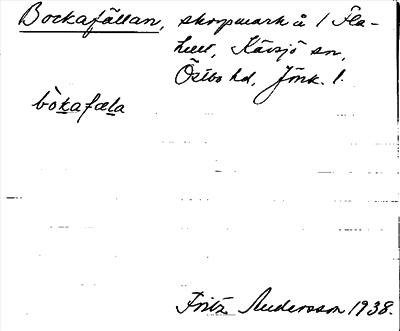 Bockafällan, skogsmark å 1 Fla-
hult, Kävsjö sn,
Östbo hd, Jönk. l.
bòkafæla
Fritz Andersson 1938.